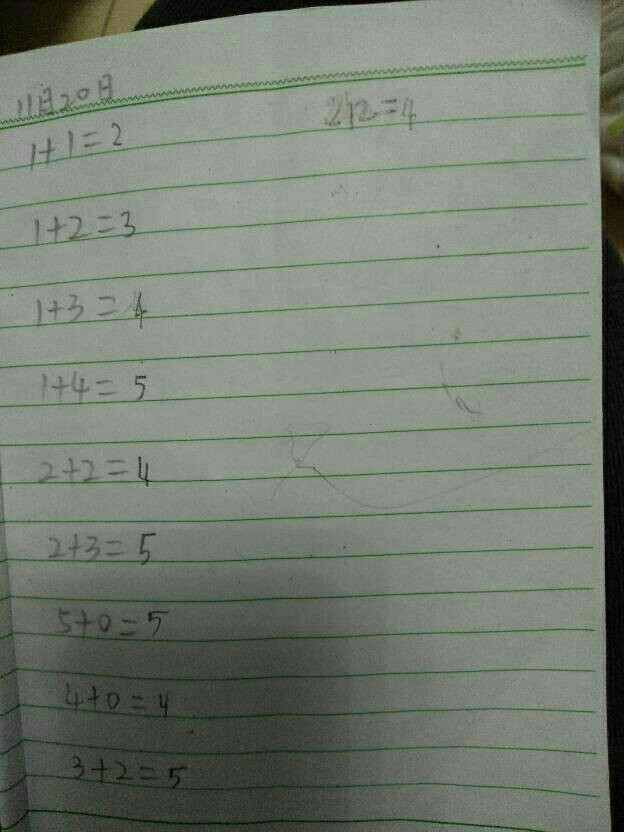 11月20日
2+2=4
1+1=2
1+2=3
1+3=4
1+4=5
2+2=4
2+3=5
5+0=5
4+0=4
3+2=5